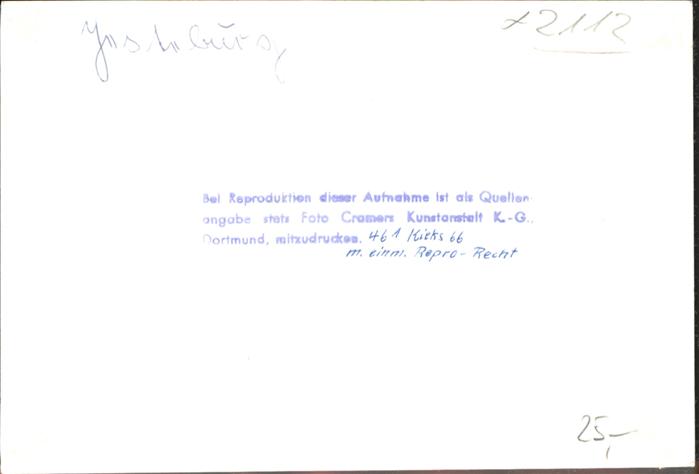 Jesteburg
+2112
Bei Reproduktion dieser Aufnahme ist als Quellen-
angabe stets Foto Cramers Kunstanstalt K.-G.,
Dortmund, mitzudrucken. 461 Kicks 66
m. einm. Repro-Recht
25,-